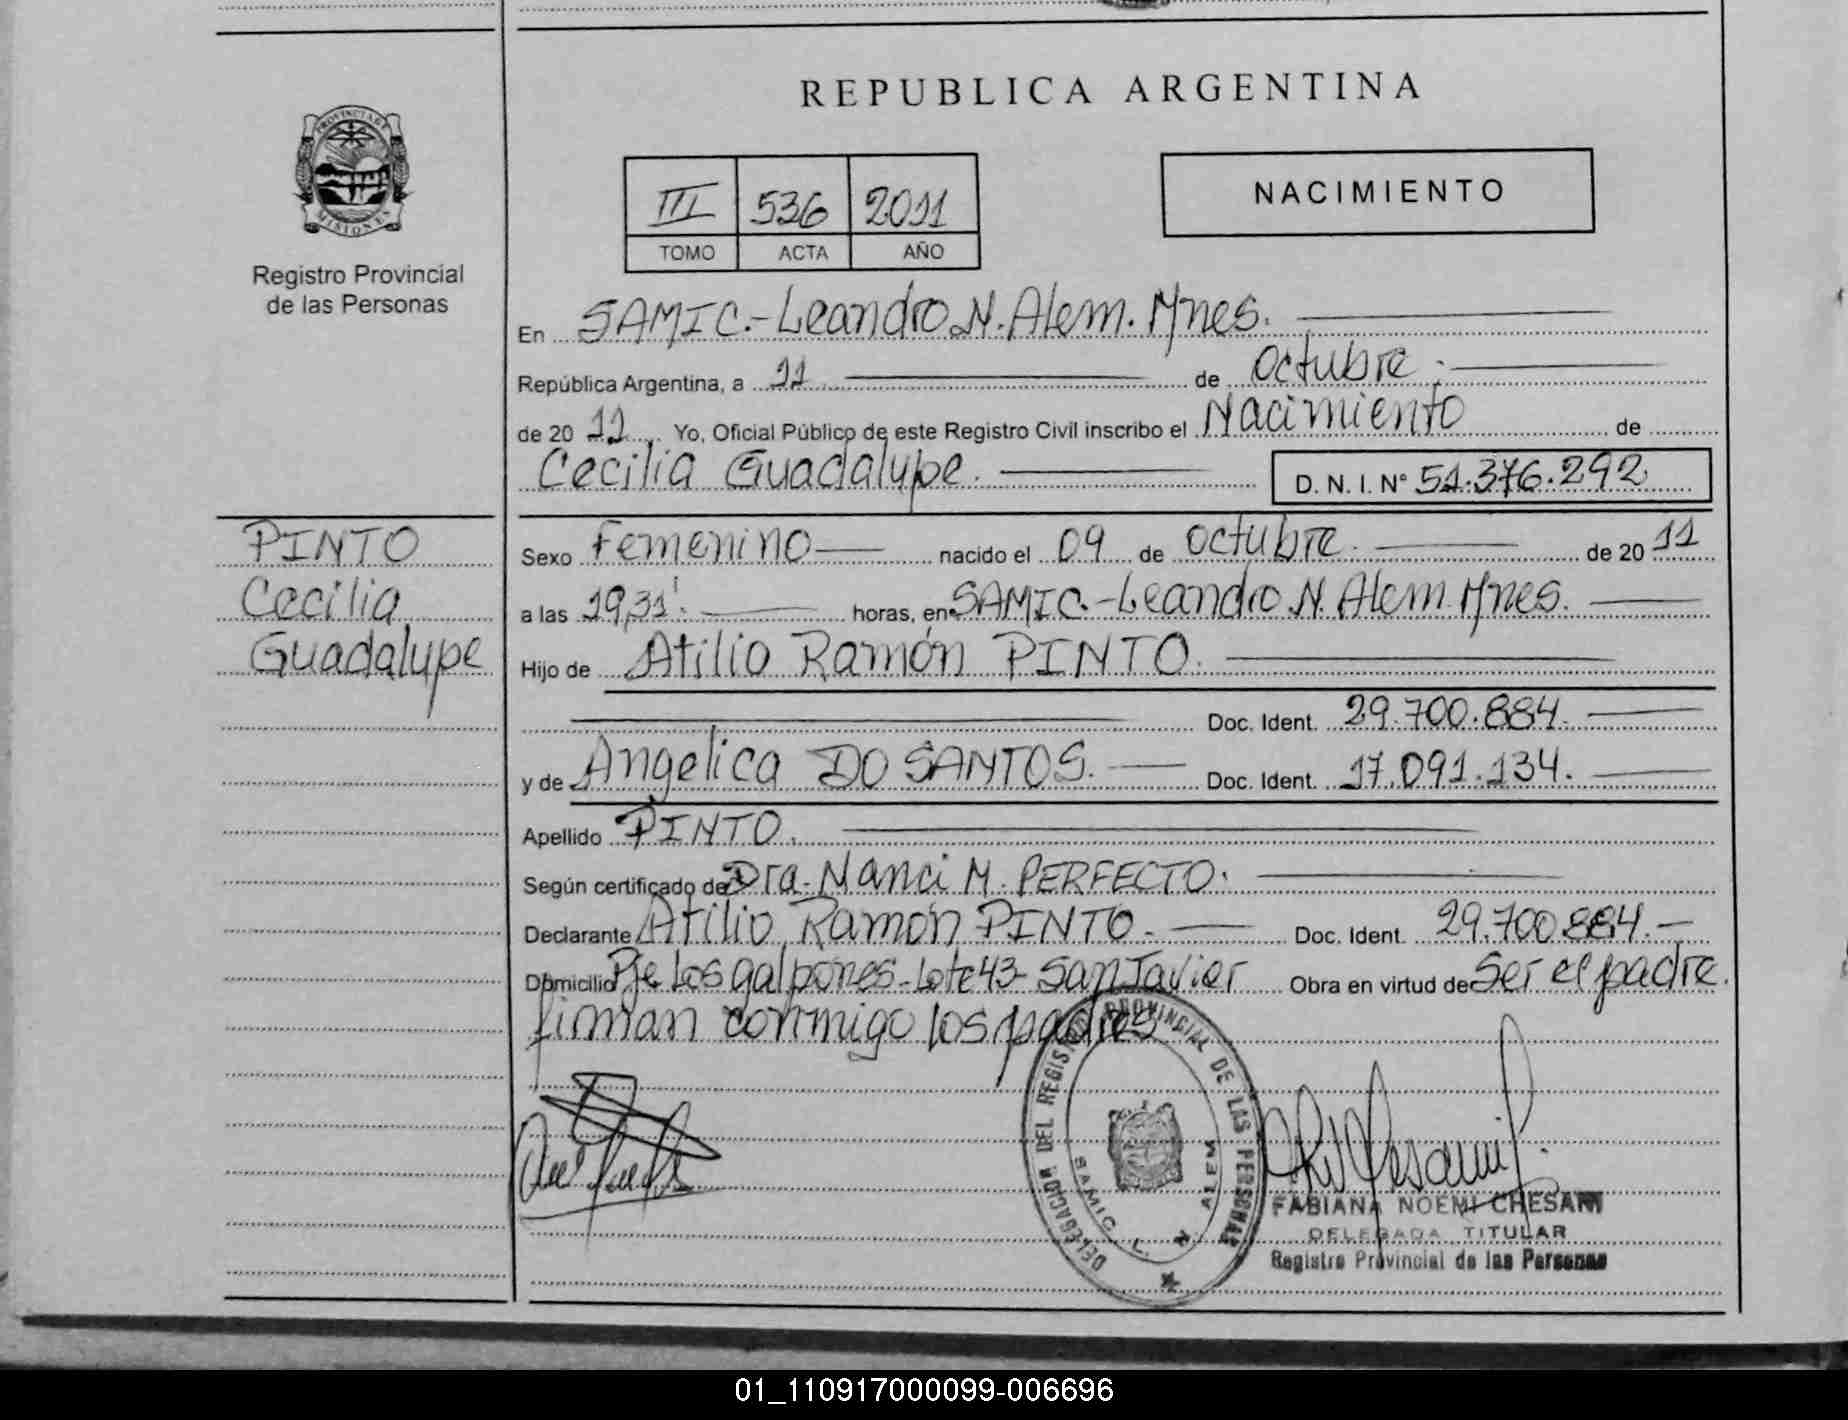 REPUBLICA ARGENTINA
PROVINCIA DE
MISIONES
Registro Provincial
de las Personas
III 536 2011
TOMO ACTA AÑO
NACIMIENTO
En SAMIC.-Leandro N. Alem. Mnes.
República Argentina, a 11 de Octubre.
de 20 11 Yo, Oficial Público de este Registro Civil inscribo el Nacimiento de
Cecilia Guadalupe. D. N. I. Nº 51.376.292
PINTO
Cecilia
Guadalupe
Sexo Femenino nacido el 09 de octubre. de 20 11
a las 19,31'. horas, en SAMIC.-Leandro N. Alem. Mnes.
Hijo de Atilio Ramón PINTO.
Doc. Ident. 29.700.884.
y de Angelica DO SANTOS. Doc. Ident. 17.091.134.
Apellido PINTO.
Según certificado de Dra. Nanci M. PERFECTO.
Declarante Atilio Ramón PINTO. Doc. Ident. 29.700.884.-
Domicilio Pje Los galpones-Lote 43- San Javier Obra en virtud de Ser el padre.
firman conmigo los padres
DELEGACION DEL REGISTRO PROVINCIAL DE LAS PERSONAS
SAMIC. L. N. ALEM
FABIANA NOEMI CHESANI
DELEGADA TITULAR
Registro Provincial de las Personas
01_110917000099-006696